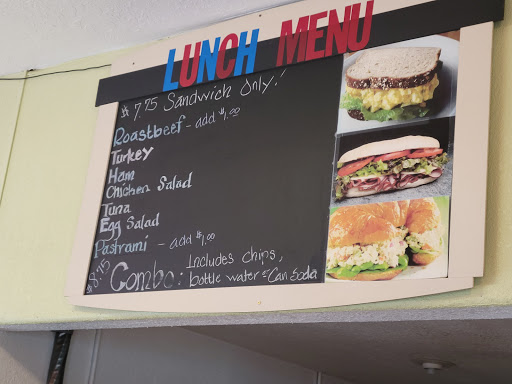 LUNCH MENU
$7.75 Sandwich Only!
Roastbeef - add $1.00
Turkey
Ham
Chicken Salad
Tuna
Egg Salad
Pastrami - add $1.00
$8.75 Combo: Includes chips,
bottle water or Can Soda